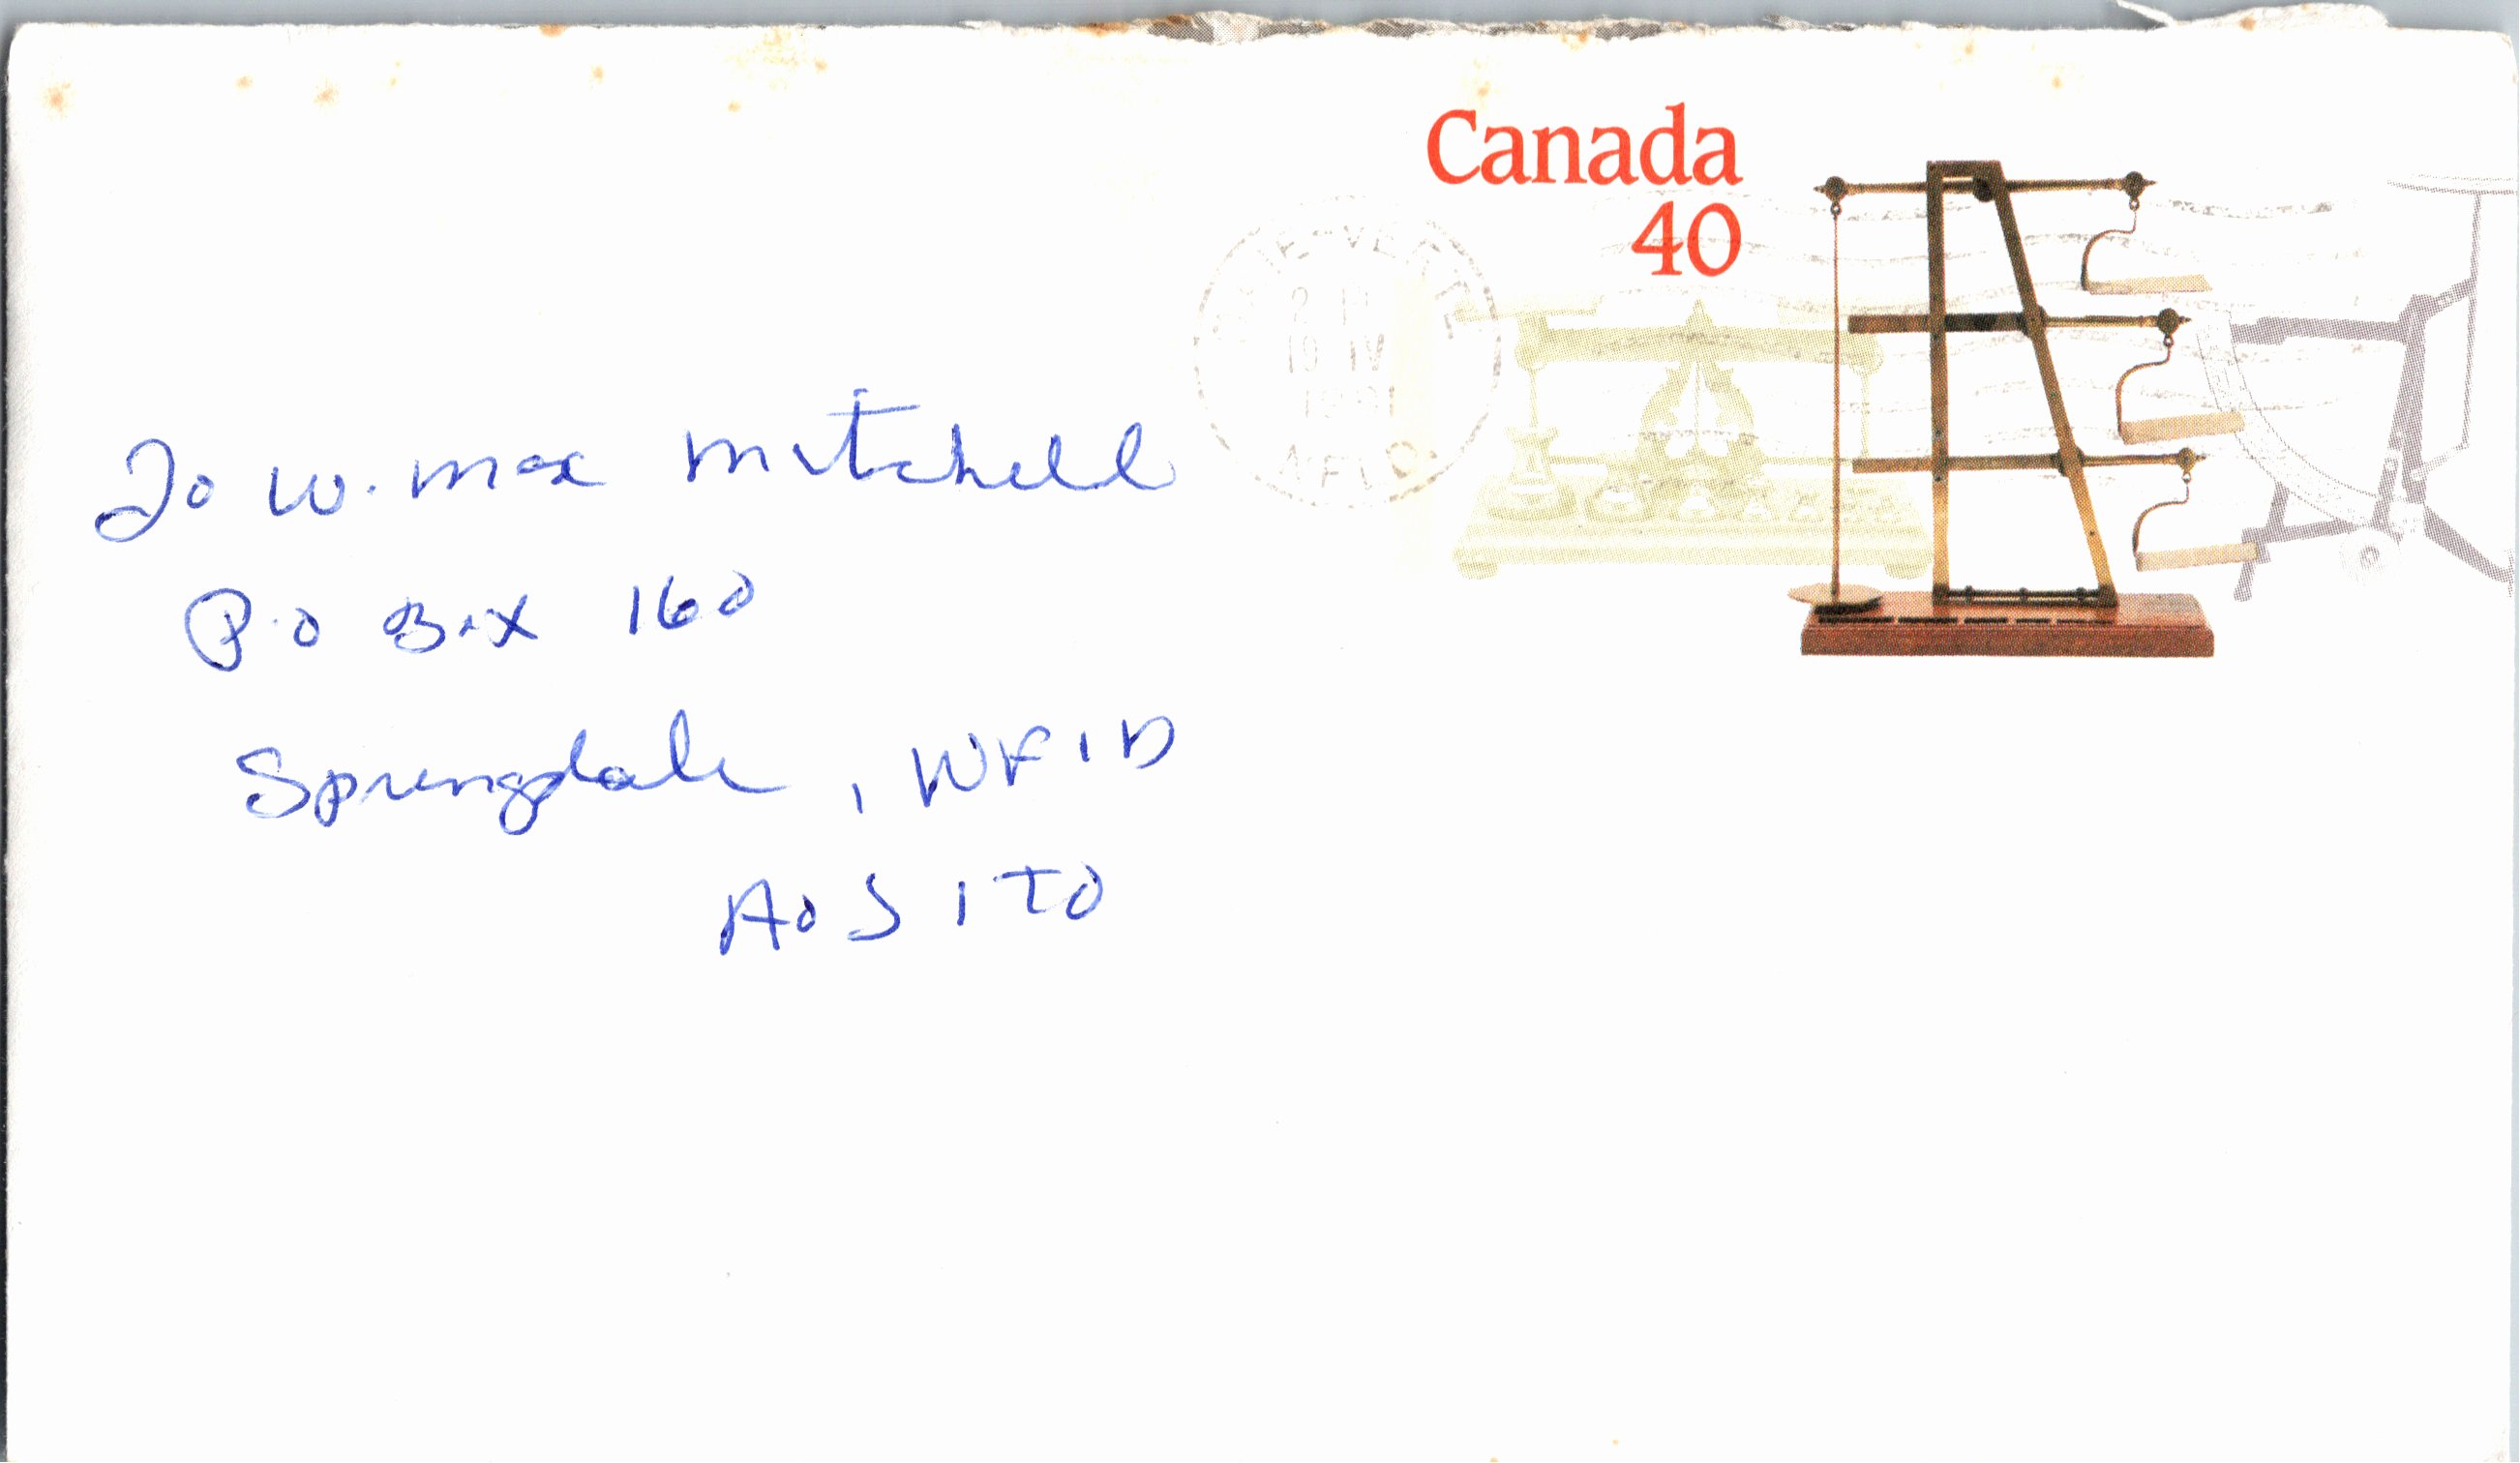 Canada
40
10 IV
1991
NFLD
To W. Max Mitchell
P.O Box 160
Springdale, NFLD
A0J 1T0